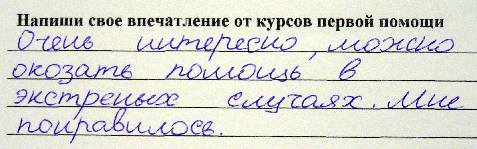 Напиши свое впечатление от курсов первой помощи
Очень интересно, можно
окозать помощь в
экстреных случаях. Мне
понравилось.